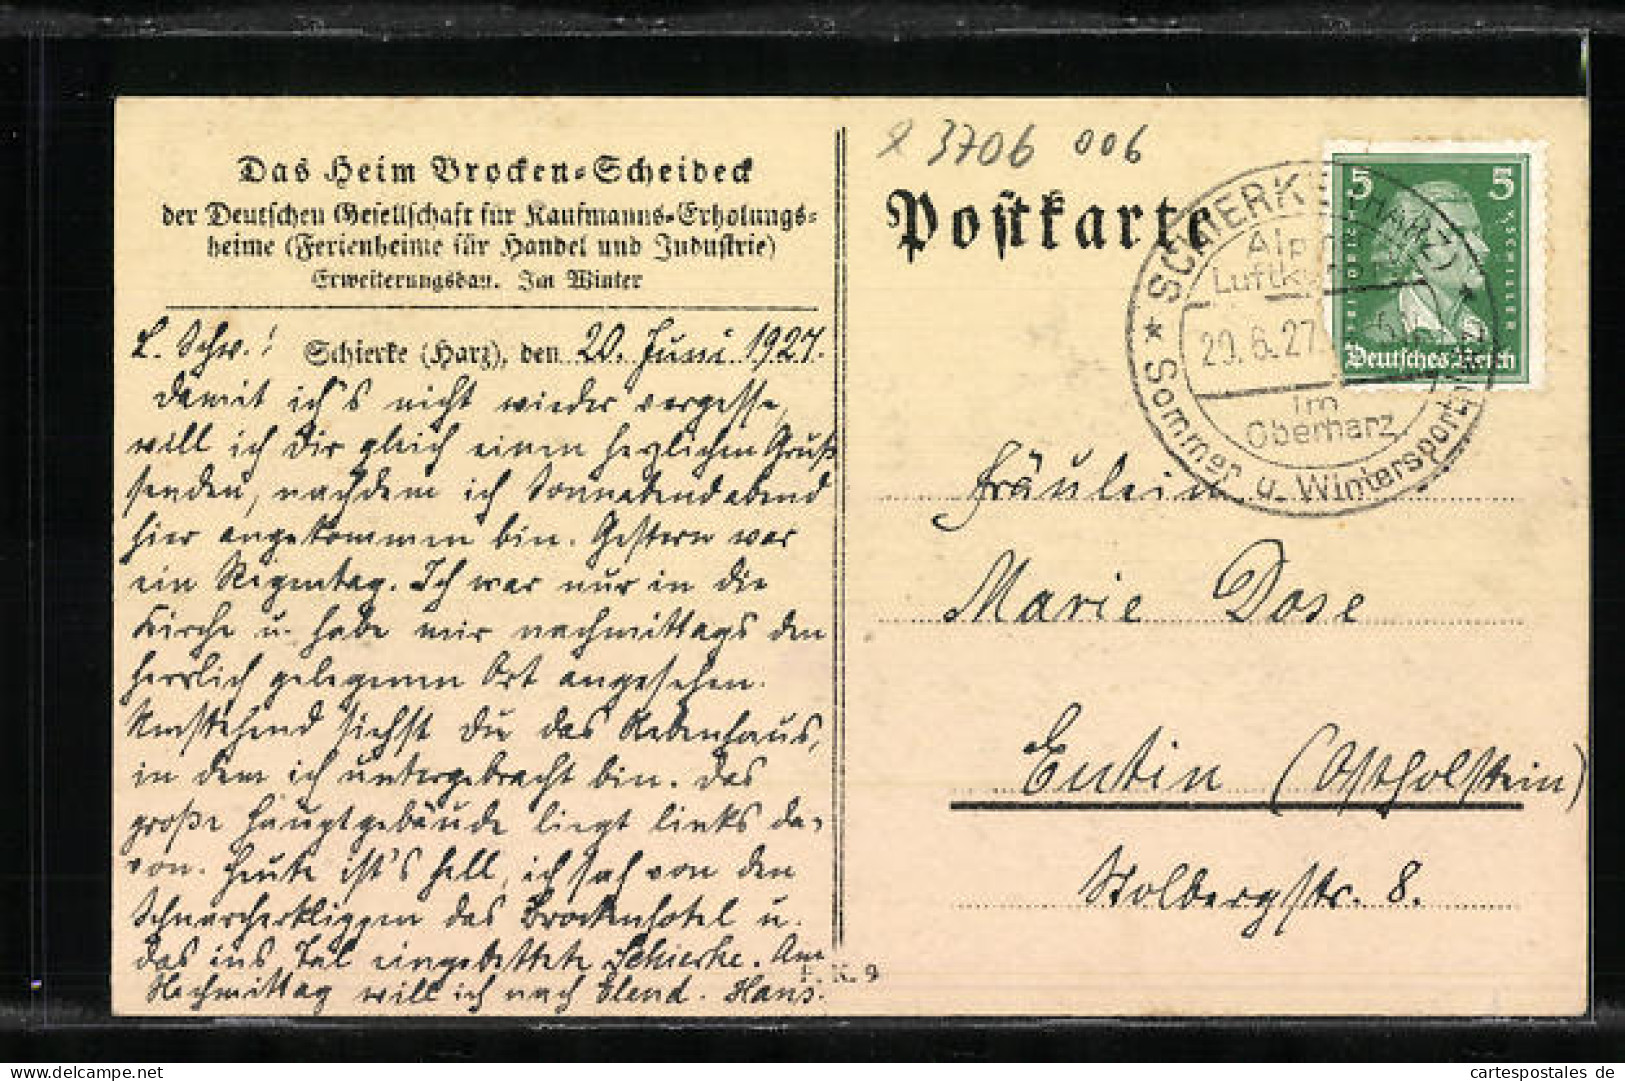 Das Heim Brocken-Scheideck
der Deutschen Gesellschaft für Kaufmanns-Erholungs-
heime (Ferienheime für Handel und Industrie)
Erweiterungsbau. Im Winter
L. Schw.! Schierke (Harz), den 20. Juni 1927.
Damit ich's nicht wieder vergesse,
will ich Dir gleich einen herzlichen Gruß
senden, nachdem ich Sonnabend abend
hier angekommen bin. Gestern war
ein Regentag. Ich war nur in die
Kirche u. habe mir nachmittags den
herrlich gelegenen Ort angesehen.
Umstehend siehst Du das Nebenhaus,
in dem ich untergebracht bin. Das
große Hauptgebäude liegt links da-
von. Heute ist's hell, ich sah von den
Schnarcherklippen das Brockenhotel u.
das ins Tal eingebettete Schierke. Am
Nachmittag will ich nach Elend. Hans.
F. K. 9
3706 006
Postkarte
SCHIERKE (HARZ)
Luftku
20.6.27
im
Oberharz
Sommer u. Wintersport
5 5
Deutsches Reich
Fräulein
Marie Dose
Eutin (Ostholstein)
Stolbergstr. 8.
cartespostales de